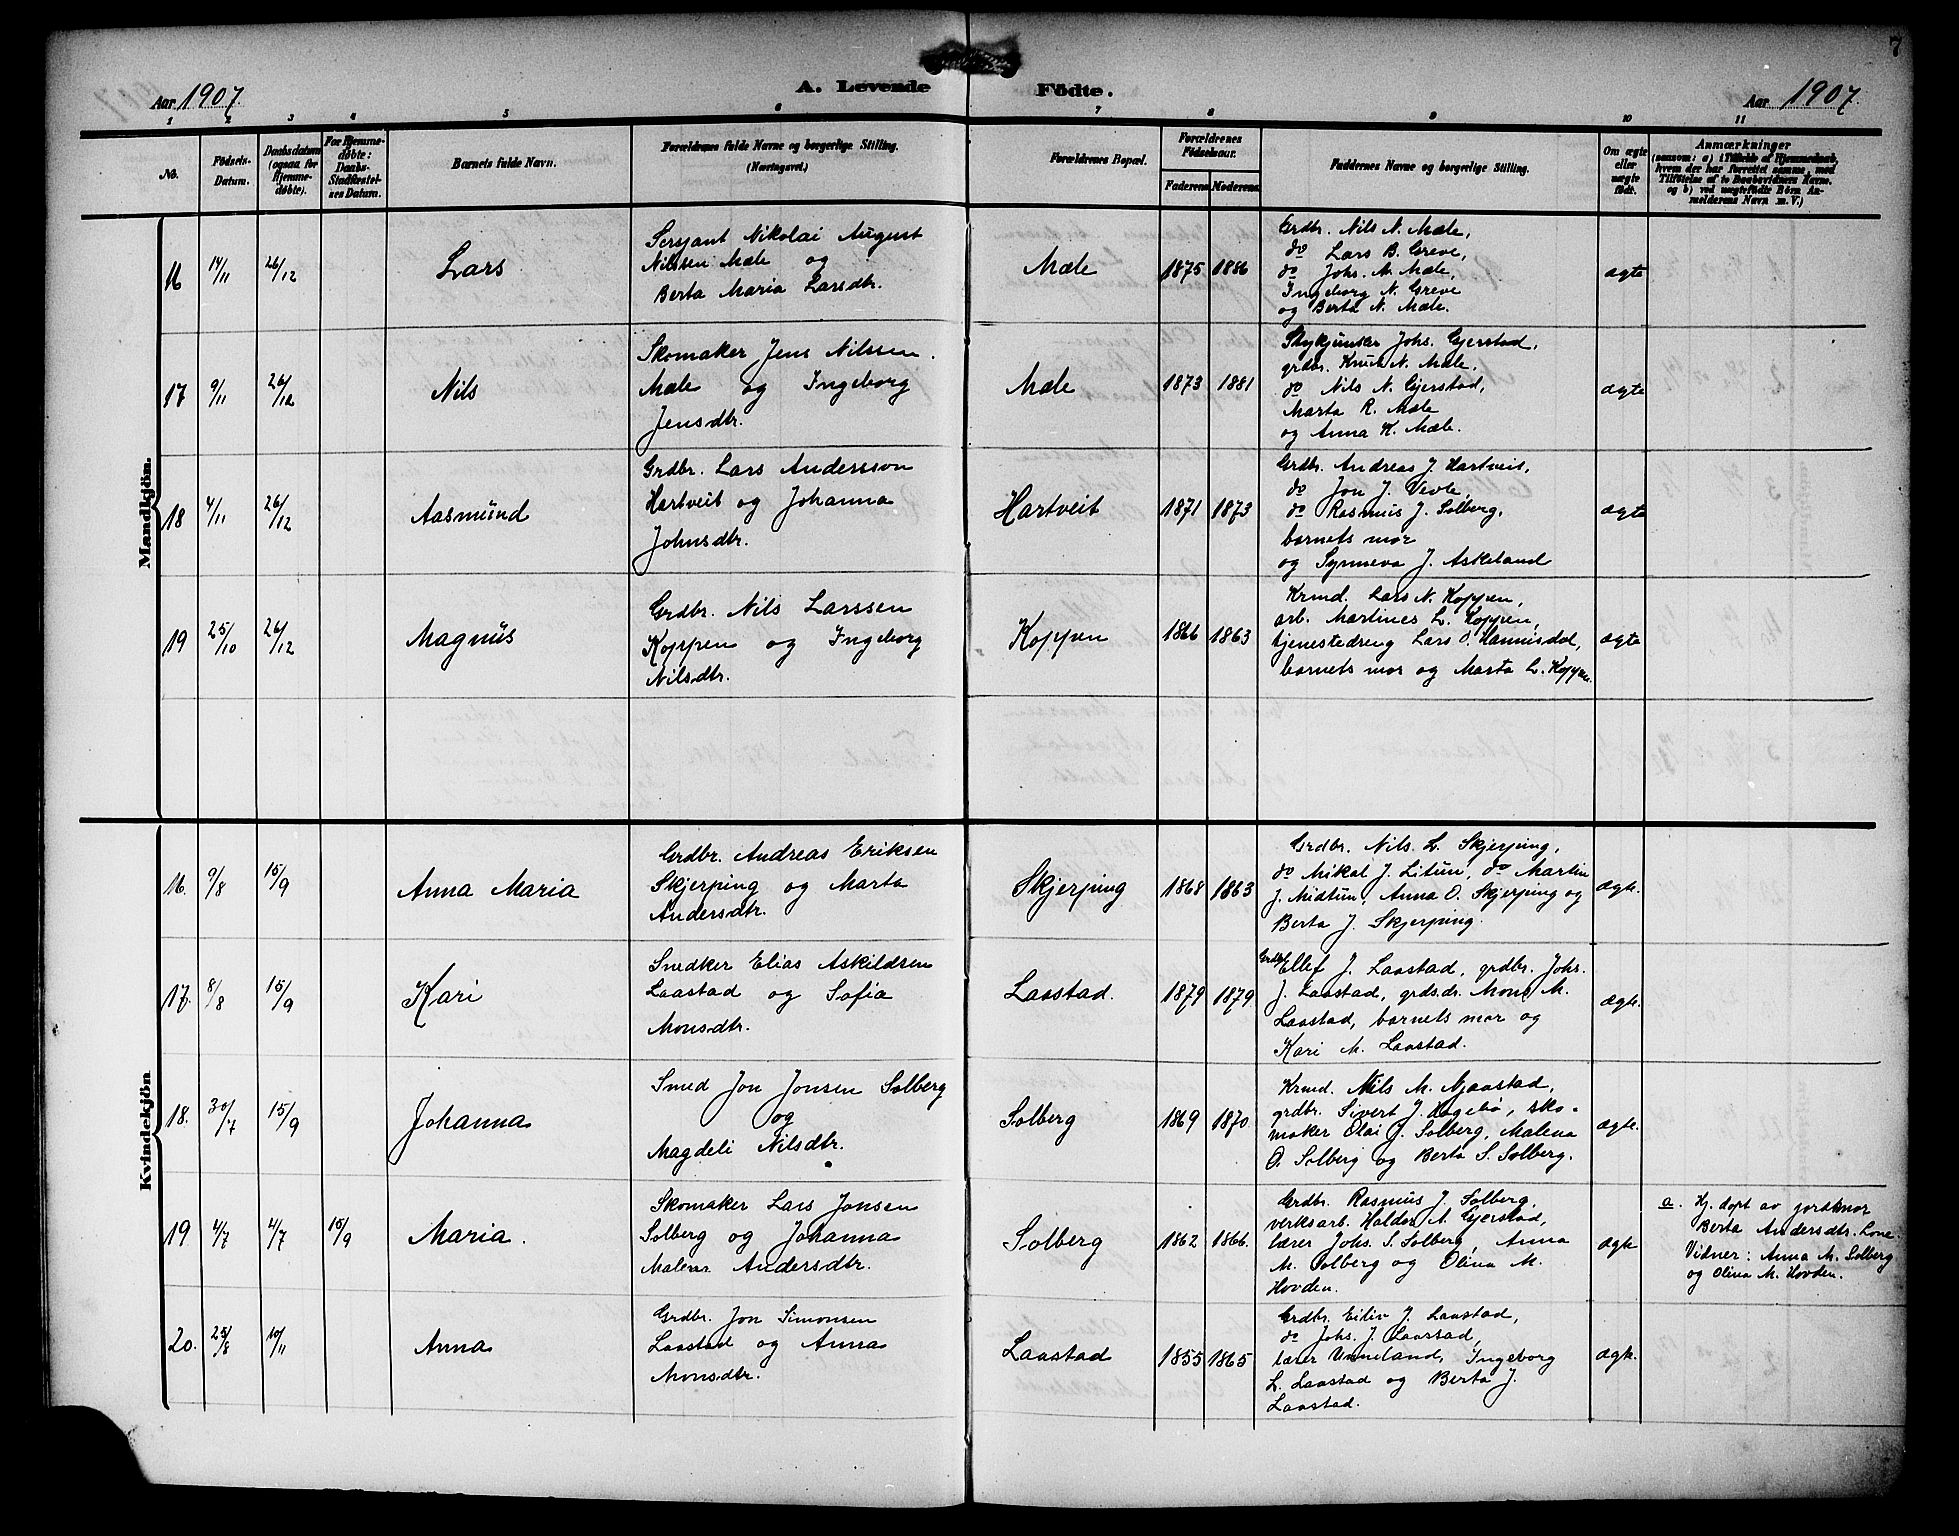 7
Aar 1907.
A. Levende Födte.
Aar 1907.
1 2 3 4 5 6 7 8 9 10 11
No.
Födsels-
Datum.
Daabsdatum
(ogsaa for
Hjemme-
döbte).
For Hjemme-
döbte:
Daabs-
Stadfæstel-
ses Datum.
Barnets fulde Navn.
Forældrenes fulde Navne og borgerlige Stilling.
(Næringsvei.)
Forældrenes Bopæl.
Forældrenes
Födselsaar.
Faderens Moderens
Faddernes Navne og borgerlige Stilling.
Om ægte
eller
uægte
födt.
Anmærkninger
(saasom: a) i Tilfælde af Hjemmedaab,
hvem der har forrettet samme, med
Tilföielse af to Daabsvidners Navne,
og b) ved uægtefödte Börn An-
melderens Navn m. V.)
Mandkjön.
16 14/11 26/12 Lars
Sersjant Nikolai August
Nilssen Mæle og
Berta Maria Larsdtr.
Mæle 1875 1886
Grdbr. Nils N. Mæle,
do Lars B. Greve,
do Johs. M. Mæle,
Ingeborg N. Greve
og Berta N. Mæle.
ægte
17 9/11 26/12 Nils
Skomaker Jens Nilssen
Mæle og Ingeborg
Jensdtr.
Mæle 1873 1881
Johs. Gjerstad,
grdbr. Knut N. Mæle,
do Nils N. Gjerstad,
Marta R. Mæle
og Anna K. Mæle.
ægte
18 4/11 26/12 Aasmund
Grdbr. Lars Andersson
Hartveit og Johanna
Johnsdtr.
Hartveit 1871 1873
Grdbr. Andreas J. Hartveit,
do Jon J. Vevle,
do Rasmus J. Solberg,
barnets mor
og Synneva J. Askeland
ægte
19 25/10 26/12 Magnus
Grdbr. Nils Larssen
Koppen og Ingeborg
Nilsdtr.
Koppen 1866 1863
Krmd. Lars N. Koppen,
arb. Martines L. Koppen,
tjenestedreng Lars O. Hannisdal,
barnets mor og Marta L. Koppen.
ægte
Kvindekjön
16. 9/8 15/9 Anna Maria
Grdbr. Andreas Eriksen
Skjerping og Marta
Andersdtr.
Skjerping 1868 1863
Grdbr. Nils L. Skjerping,
do Mikal J. Litun, do Martin
J. Midtun, Anna O. Skjerping og
Berta J. Skjerping.
ægte.
17. 8/8 15/9 Kari
Snedker Elias Askildsen
Laastad og Sofia
Monsdtr.
Laastad. 1879 1879
Grdbr. Ellef J. Laastad, grdbr. Johs.
J. Laastad, grds.dr. Mons M.
Laastad, barnets mor og
Kari M. Laastad.
ægte.
18. 30/7 15/9 Johanna
Smed Jon Jonsen Solberg
og
Magdeli Nilsdtr.
Solberg 1869 1870
Krmd. Nils M. Njaastad,
grdbr. Sivert J. Hagebø, sko-
maker Olai J. Solberg, Malena
O. Solberg og Berta S. Solberg.
ægte.
19 4/7 4/7 15/9 Maria.
Skomaker Lars Jonsen
Solberg og Johanna
Malena Andersdtr.
Solberg 1862 1866.
Grdbr. Rasmus J. Solberg,
verksarb. Haldor A. Gjerstad,
lærer Johs. S. Solberg, Anna
M. Solberg og Olina M.
Hovden.
ægte
a. Hj. døpt av jordmor
Berta Andersdtr. Lone
Vidner: Anna M. Solberg
og Olina M. Hovden.
20. 25/8 10/11 Anna
Grdbr. Jon Simonsen
Laastad og Anna
Monsdtr.
Laastad 1855 1865
Grdbr. Eiliv J. Laastad,
do Johs. J. Laastad,
lærer Unneland, Ingeborg
L. Laastad og Berta J.
Laastad.
ægte.